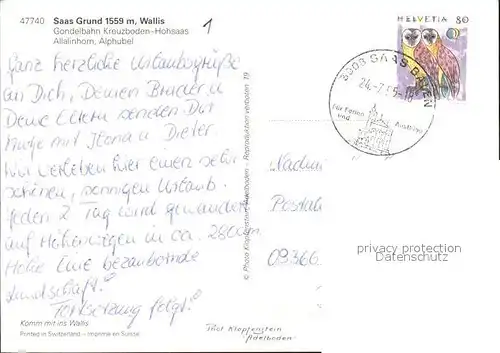 47740 Saas Grund 1559 m, Wallis
Gondelbahn Kreuzboden-Hohsaas
Allalinhorn, Alphubel
1
HELVETIA 80
SAAS BALEN
24.-7.
Für Ferien
und
Ganz herzliche Urlaubsgrüße
an Dich, Deinen Bruder u
Deine Eltern senden Dir
Antje mit Ilona u Dieter.
Wir verleben hier einen sehr
schönen, sonnigen Urlaub.
Jeden 2 Tag wird gewandert
auf Höhenwegen in ca. 2800m
Höhe Eine bezaubernde
Landschaft!
Fortsetzung folgt!
© Photo Klopfenstein Adelboden - Reproduktion verboten 19
09366
privacy protection
Datenschutz
Komm mit ins Wallis
Printed in Switzerland - Imprimé en Suisse
Thor Klopfenstein
Adelboden